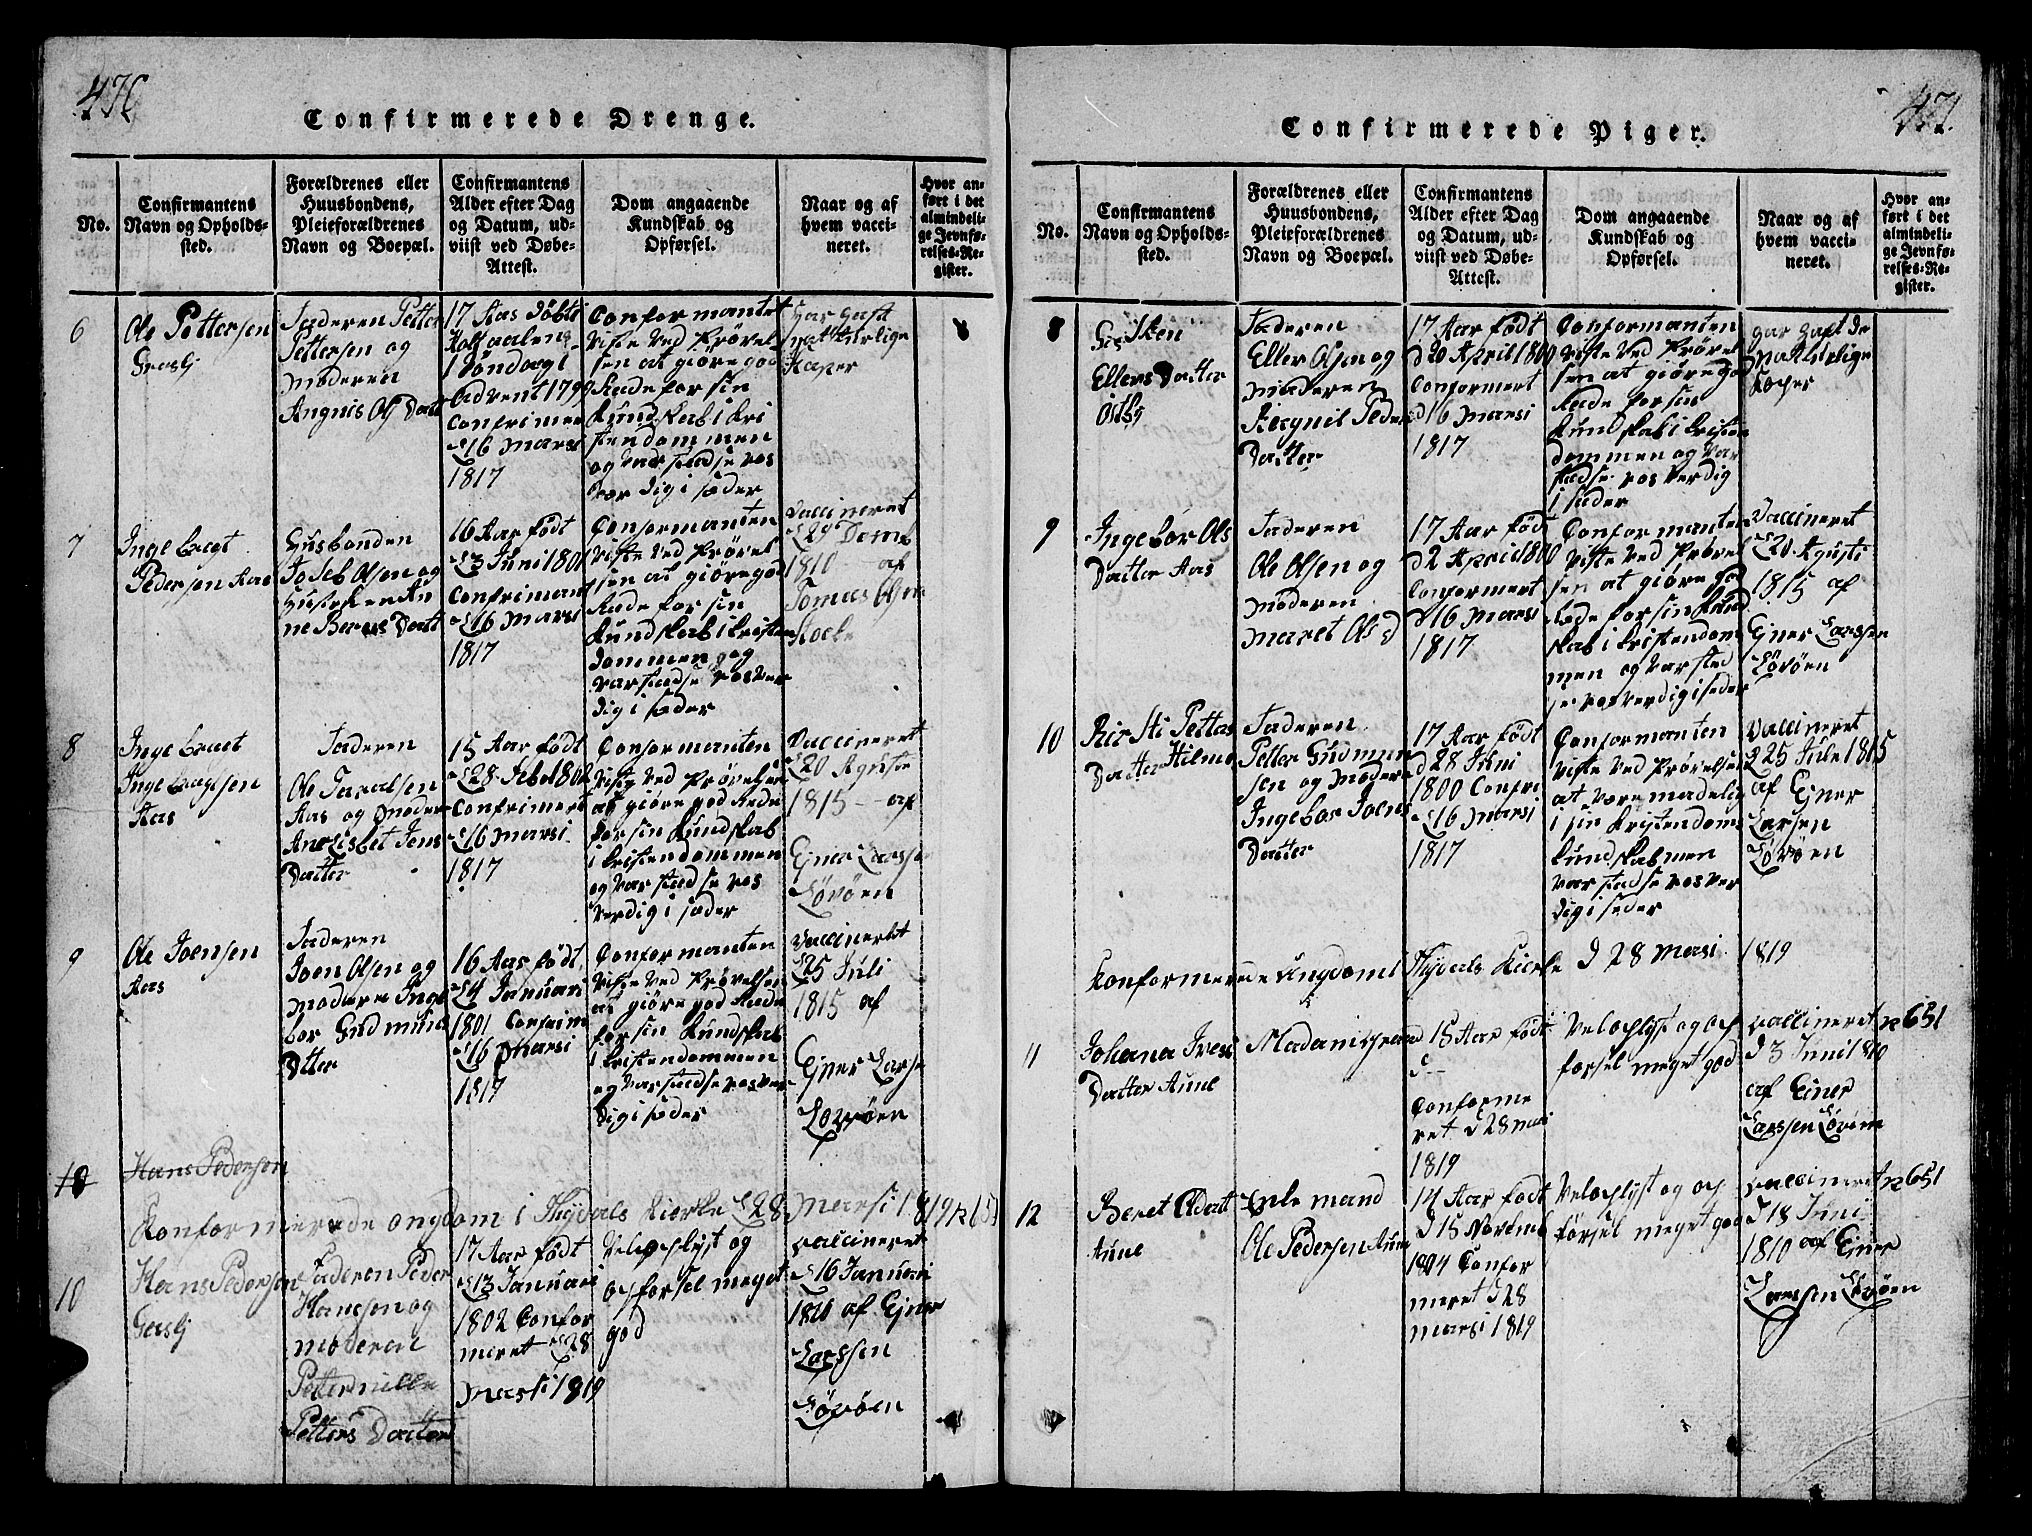 Confirmerede Drenge.
No.
Confirmantens
Navn og Opholds-
sted.
Forældrenes eller
Huusbondens,
Pleieforældrenes
Navn og Boepæl.
Confirmantens
Alder efter Dag
og Datum, ud-
viist ved Døbe-
Attest.
Dom angaaende
Kundskab og
Opførsel.
Naar og af
hvem vacci-
neret.
Hvor an-
ført i det
almindeli-
ge Jevnfø-
relses-Re-
gister.
6
Ole Pettersen
Græslj
Faderen Petter
Pettersen og
moderen
Angnis Ols Datt
17 Aar Döbt i
Holtaalen
1 Söndag i
Advent 1799
Confrimer
d 16 Marsi
1817
Conformantet
viste ved Prövel
sen at giöre god
Rede for sin
Kundskab i kri
stendommen
og var stædse ros
vær dig i sæder
Har hast
nattturlige
Kaper
7
Inge bregt
Pedersen Aas
Husbonden
Joseb Olsen og
Hustruen An
ne Berets Datt
16 Aar födt
d 3 Juni 1801
Confriman
d 16 Marsi
1817
Conformanten
viste ved Prövel
sen at giöre god
Rede for sin
Kundskab i kristen
dommen og
var stædse rosver
dig i sæder
Vaccineret
d 29 Demb
1810 af
Tomas Olsen
Stocke
8
Inge braet
Inge bragtsen
Aas
Faderen
Ole Taraldsen
Aas og moder
Anelisbet Jens
Datter
15 Aar födt
d 28 Feb 1802
Confrimert
d 16 Marsi
1817
Conformanten
viste ved Prövelsen
at giöre god Rede
for sin Kundskab
i kristendommen
og var stædse ros
verdig i sæder
Vaccineret
d 20 Agusti
1815 - - af
Ejner Larsse
Lövöen
9
Ole Joensen
Aas
Faderen
Joen Olsen og
modere Inge
bor Gudmuns
Dtter
16 Aar födt
d 4 Januari
1801 Confrim
d 16 Marsi
1817
Conformanten
viste ved Prövelsen
at giöre god Rede
for sin Kundskab
i kristendommen
og var stædse rosver
dig i sæder
Vaccineret
d 25 Juli
1815 af
Ejner Larse
Lövöen
10
Hans Pedersen
Konformerede ongdom i Thydals Kierke d 28 Marsi 1819 N 651
10
Hans Pedersen
Græslj
Faderen Peder
Hansen og
moderen
Petternille
Petters Datter
17 Aar födt
d 13 Januari
1802 Confor
meret d 28
Marsi 1819
Veloplyst og
opforsel meget
god
Vaccineret
d 16 Januari
1810 af Ejner
Larssen
Lövöen
471.
Confirmerede Piger.
No.
Confirmantens
Navn og Opholds-
sted.
Forældrenes eller
Huusbondens,
Pleieforældrenes
Navn og Boepæl.
Confirmantens
Alder efter Dag
og Datum, ud-
viist ved Døbe-
Attest.
Dom angaaende
Kundskab og
Opførsel.
Naar og af
hvem vacci-
neret.
Hvor an-
ført i det
almindeli-
ge Jevnfø-
relses-Re-
gister.
8
Ellers Datter
Östby
Faderen
Eller Olsen og
moderen
Ragnil Peders
Datter
17 Aar födt
d 20 April 1800
Conformert
d 16 Marsi
1817
Conformanten
viste ved Prövel
sen at giöre god
Rede for sin
Kundskab i kristen
dommen og var
stædse rosverdig
i sæder
har haft de
naturlige
Koper
9
Ingebor Ols
Datter Aas
Faderen
Ole Olsen og
moderen
Maret Ols d
17 Aar födt
d 2 April 1800
Conformert
d 16 Marsi
1817
Conformanten
viste ved Prövel
sen at giöre god
Rede for sin Kund
skab i kristendom
men og var sted
se rosverdig i seder
Vaccineret
d 20 Agusti
1815 af
Ejner Larssen
Lövöen
10
Kirsti Pettas
Datter Hilmo
Faderen
Petter Gudmun
sen og moder
Ingebor Joens
Datter
17 Aar födt
d 28 Juni
1800 Confri
d 16 Marsi
1817
Conformanten
viste ved Prövelsen
at være madelig
i sin kristendoms
kundskab men
var stædse rosver
dig i seder
Vaccineret
d 25 Jule 1815
af Ejner
Larsen
Lövöen
Konformerede Ungdom i Thydals Kierke d 28 Marsi 1819
11
Johana Ives
Datter Aune
15 Aar födt
d - -
Conforme
ret d 28 Mar
1819
Veloplyst og op
forsel meget god
Vaccineret
d 3 Juni 1810
af Ejner
Larssen Lövöen
N 651
12
Beret Oldatt
Aune
Ole Pedersen Aune
14 Aar födt
d 15 Novemb
1804 Confor
meret d 28
Marsi 1819
Veloplyst og op
förssel meget god
Vaccineret
d 18 Juni
1810 af Ejner
Larssen Lövöen
N 651